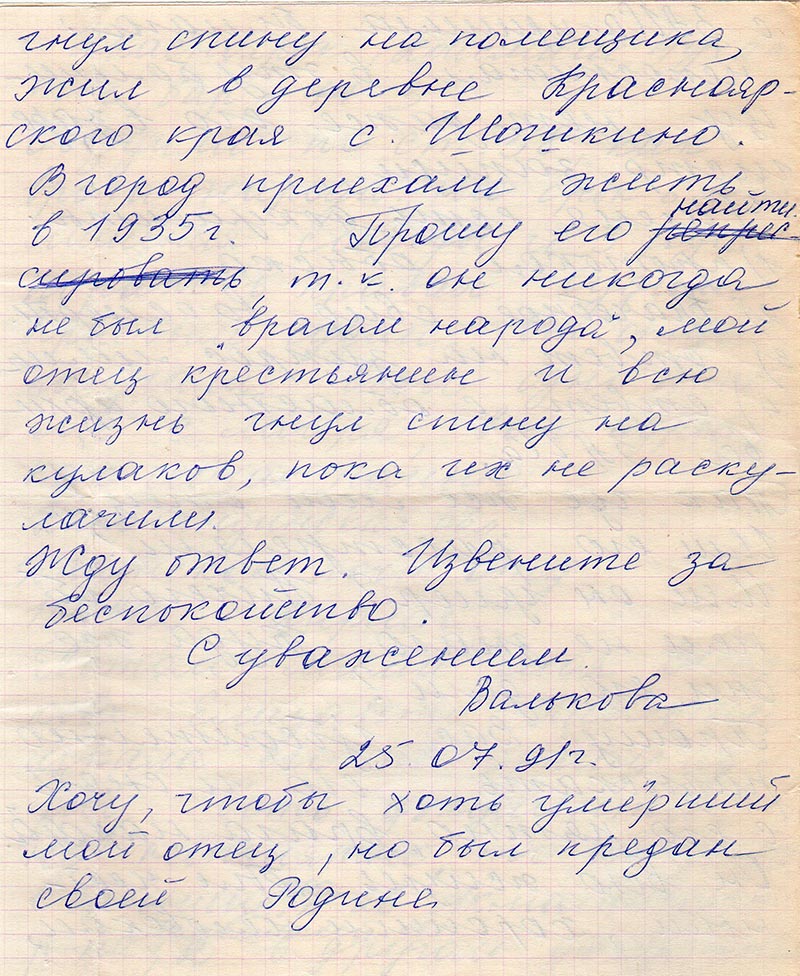 гнул спину на помещика,
жил в деревне Краснояр-
ского края с. Шошкино.
В город приехали жить
найти
в 1935 г. Прошу его репрес-
сировать, т.к. он никогда
не был "врагом народа", мой
отец крестьянин и всю
жизнь гнул спину на
кулаков, пока их не раску-
лачили.
Жду ответ. Извените за
беспокойство.
С уважением.
Валькова
25.07.91г.
Хочу, чтобы хоть умёрший
мой отец, но был предан
своей Родине